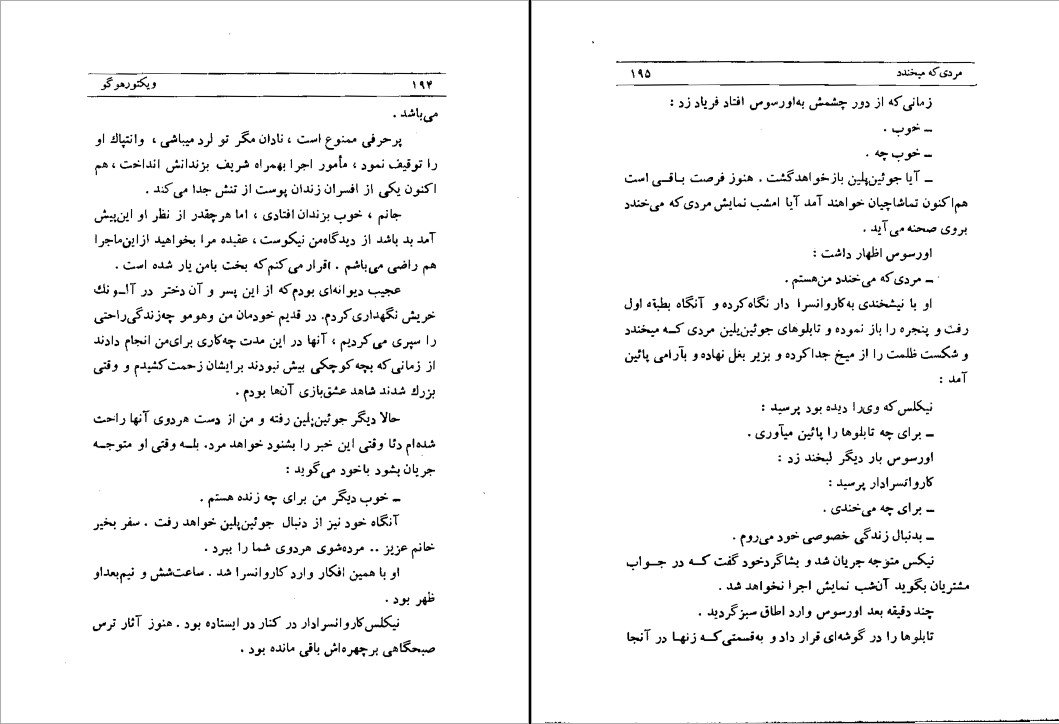 ویکتورهوگو ۱۹۴
می‌باشد .
پرحرفی ممنوع است ، نادان مگر تو لرد میباشی ، وانتپاك او
را توقیف نمود ، مأمور اجرا بهمراه شریف بزندانش انداخت ، هم
اکنون یکی از افسران زندان پوست از تنش جدا می‌کند .
جانم ، خوب بزندان افتادی ، اما هرچقدر از نظر او این‌پیش
آمد بد باشد از دیدگاه‌من نیکوست ، عقیده مرا بخواهید ازاین‌ماجرا
هم راضی می‌باشم . اقرار می‌کنم‌که بخت بامن یار شده است .
عجیب دیوانه‌ای بودم‌که از این پسر و آن دختر در آلونك
خریش نگهداری‌کردم. در قدیم خودمان من وهومو چه‌زندگی‌راحتی
را سپری می‌کردیم ، آنها در این مدت چه‌کاری برای‌من انجام دادند
از زمانی‌که بچه‌کوچکی بیش نبودند برایشان زحمت‌کشیدم و وقتی
بزرك شدند شاهد عشق‌بازی آن‌ها بودم .
حالا دیگر جوئین‌پلین رفته و من از دست هردوی آنها راحت
شده‌ام دئا وقتی این خبر را بشنود خواهد مرد. بلـه وقتی او متوجـه
جریان بشود باخود می‌گوید :
ــ خوب دیگر من برای چه زنده هستم .
آنگاه خود نیز از دنبال جوئین‌پلین خواهد رفت . سفر بخیر
خانم عزیز .. مرده‌شوی هردوی شما را ببرد .
او با همین افکار وارد کاروانسرا شد . ساعت‌شش و نیم‌بعداو
ظهر بود .
نیکلس‌کاروانسرادار در کنار در ایستاده بود . هنوز آثار ترس
صبحگاهی برچهره‌اش باقی مانده بود .
مردی‌که میخندد ۱۹۵
زمانی‌که از دور چشمش به‌اورسوس افتاد فریاد زد :
ــ خوب .
ــ خوب چه .
ــ آیا جوئین‌پلین بازخواهدگشت . هنوز فرصت بـاقـی است
هم‌اکنون تماشاچیان خواهند آمد آیا امشب نمایش مردی‌که می‌خندد
بروی صحنه می‌آید .
اورسوس اظهار داشت :
ــ مردی‌که می‌خندد من‌هستم .
او با نیشخندی به‌کاروانسرا دار نگاه‌کرده و آنگاه بطبقه اول
رفت و پنجره را باز نموده و تابلوهای جوئین‌پلین مردی کـه میخندد
و شکست ظلمت را از میخ جداکرده و بزیر بغل نهاده و بآرامی پائین
آمد :
نیکلس‌که وی‌را دیده بود پرسید :
ــ برای چه تابلوها را پائین میآوری .
اورسوس بار دیگر لبخند زد :
کاروانسرادار پرسید :
ــ برای چه می‌خندی .
ــ بدنبال زندگی خصوصی خود می‌روم .
نیکس متوجه جریان شد و بشاگردخود گفت کـه در جـواب
مشتریان بگوید آن‌شب نمایش اجرا نخواهد شد .
چند دقیقه بعد اورسوس وارد اطاق سبزگردید .
تابلوها را در گوشه‌ای قرار داد و به‌قسمتی‌کـه زنهـا در آنجا